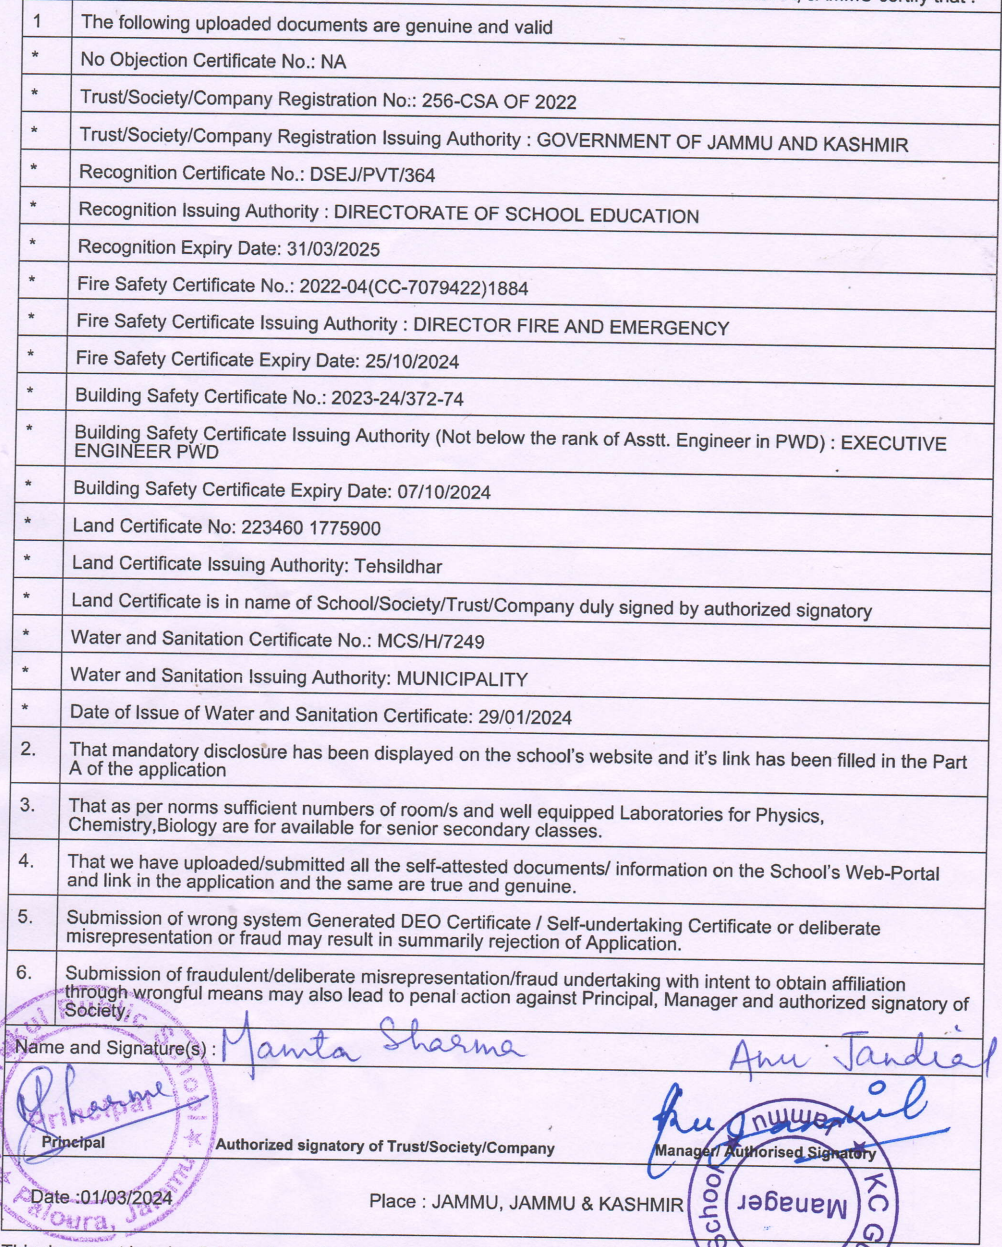 1 The following uploaded documents are genuine and valid
* No Objection Certificate No.: NA
* Trust/Society/Company Registration No.: 256-CSA OF 2022
* Trust/Society/Company Registration Issuing Authority : GOVERNMENT OF JAMMU AND KASHMIR
* Recognition Certificate No.: DSEJ/PVT/364
* Recognition Issuing Authority : DIRECTORATE OF SCHOOL EDUCATION
* Recognition Expiry Date: 31/03/2025
* Fire Safety Certificate No.: 2022-04(CC-7079422)1884
* Fire Safety Certificate Issuing Authority : DIRECTOR FIRE AND EMERGENCY
* Fire Safety Certificate Expiry Date: 25/10/2024
* Building Safety Certificate No.: 2023-24/372-74
* Building Safety Certificate Issuing Authority (Not below the rank of Asstt. Engineer in PWD) : EXECUTIVE
ENGINEER PWD
* Building Safety Certificate Expiry Date: 07/10/2024
* Land Certificate No: 223460 1775900
* Land Certificate Issuing Authority: Tehsildhar
* Land Certificate is in name of School/Society/Trust/Company duly signed by authorized signatory
* Water and Sanitation Certificate No.: MCS/H/7249
* Water and Sanitation Issuing Authority: MUNICIPALITY
* Date of Issue of Water and Sanitation Certificate: 29/01/2024
2. That mandatory disclosure has been displayed on the school's website and it's link has been filled in the Part
A of the application
3. That as per norms sufficient numbers of room/s and well equipped Laboratories for Physics,
Chemistry,Biology are for available for senior secondary classes.
4. That we have uploaded/submitted all the self-attested documents/ information on the School's Web-Portal
and link in the application and the same are true and genuine.
5. Submission of wrong system Generated DEO Certificate / Self-undertaking Certificate or deliberate
misrepresentation or fraud may result in summarily rejection of Application.
6. Submission of fraudulent/deliberate misrepresentation/fraud undertaking with intent to obtain affiliation
through wrongful means may also lead to penal action against Principal, Manager and authorized signatory of
Society.
Name and Signature(s) : Mamta Sharma Anu Jandial
Public School
Principal
Paloura, Jammu
Principal Authorized signatory of Trust/Society/Company Manager/ Authorised Signatory
Jammu
School KC
Manager
Date :01/03/2024 Place : JAMMU, JAMMU & KASHMIR